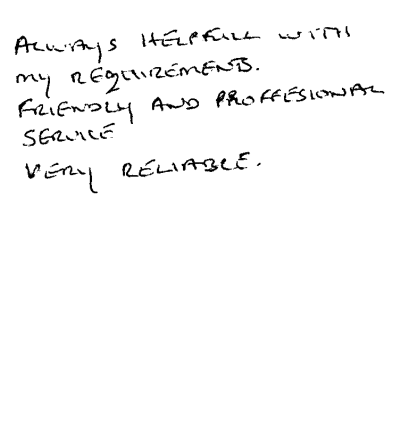 ALWAYS HELPFULL WITH
MY REQUIREMENTS.
FRIENDLY AND PROFFESIONAL
SERVICE
VERY RELIABLE.